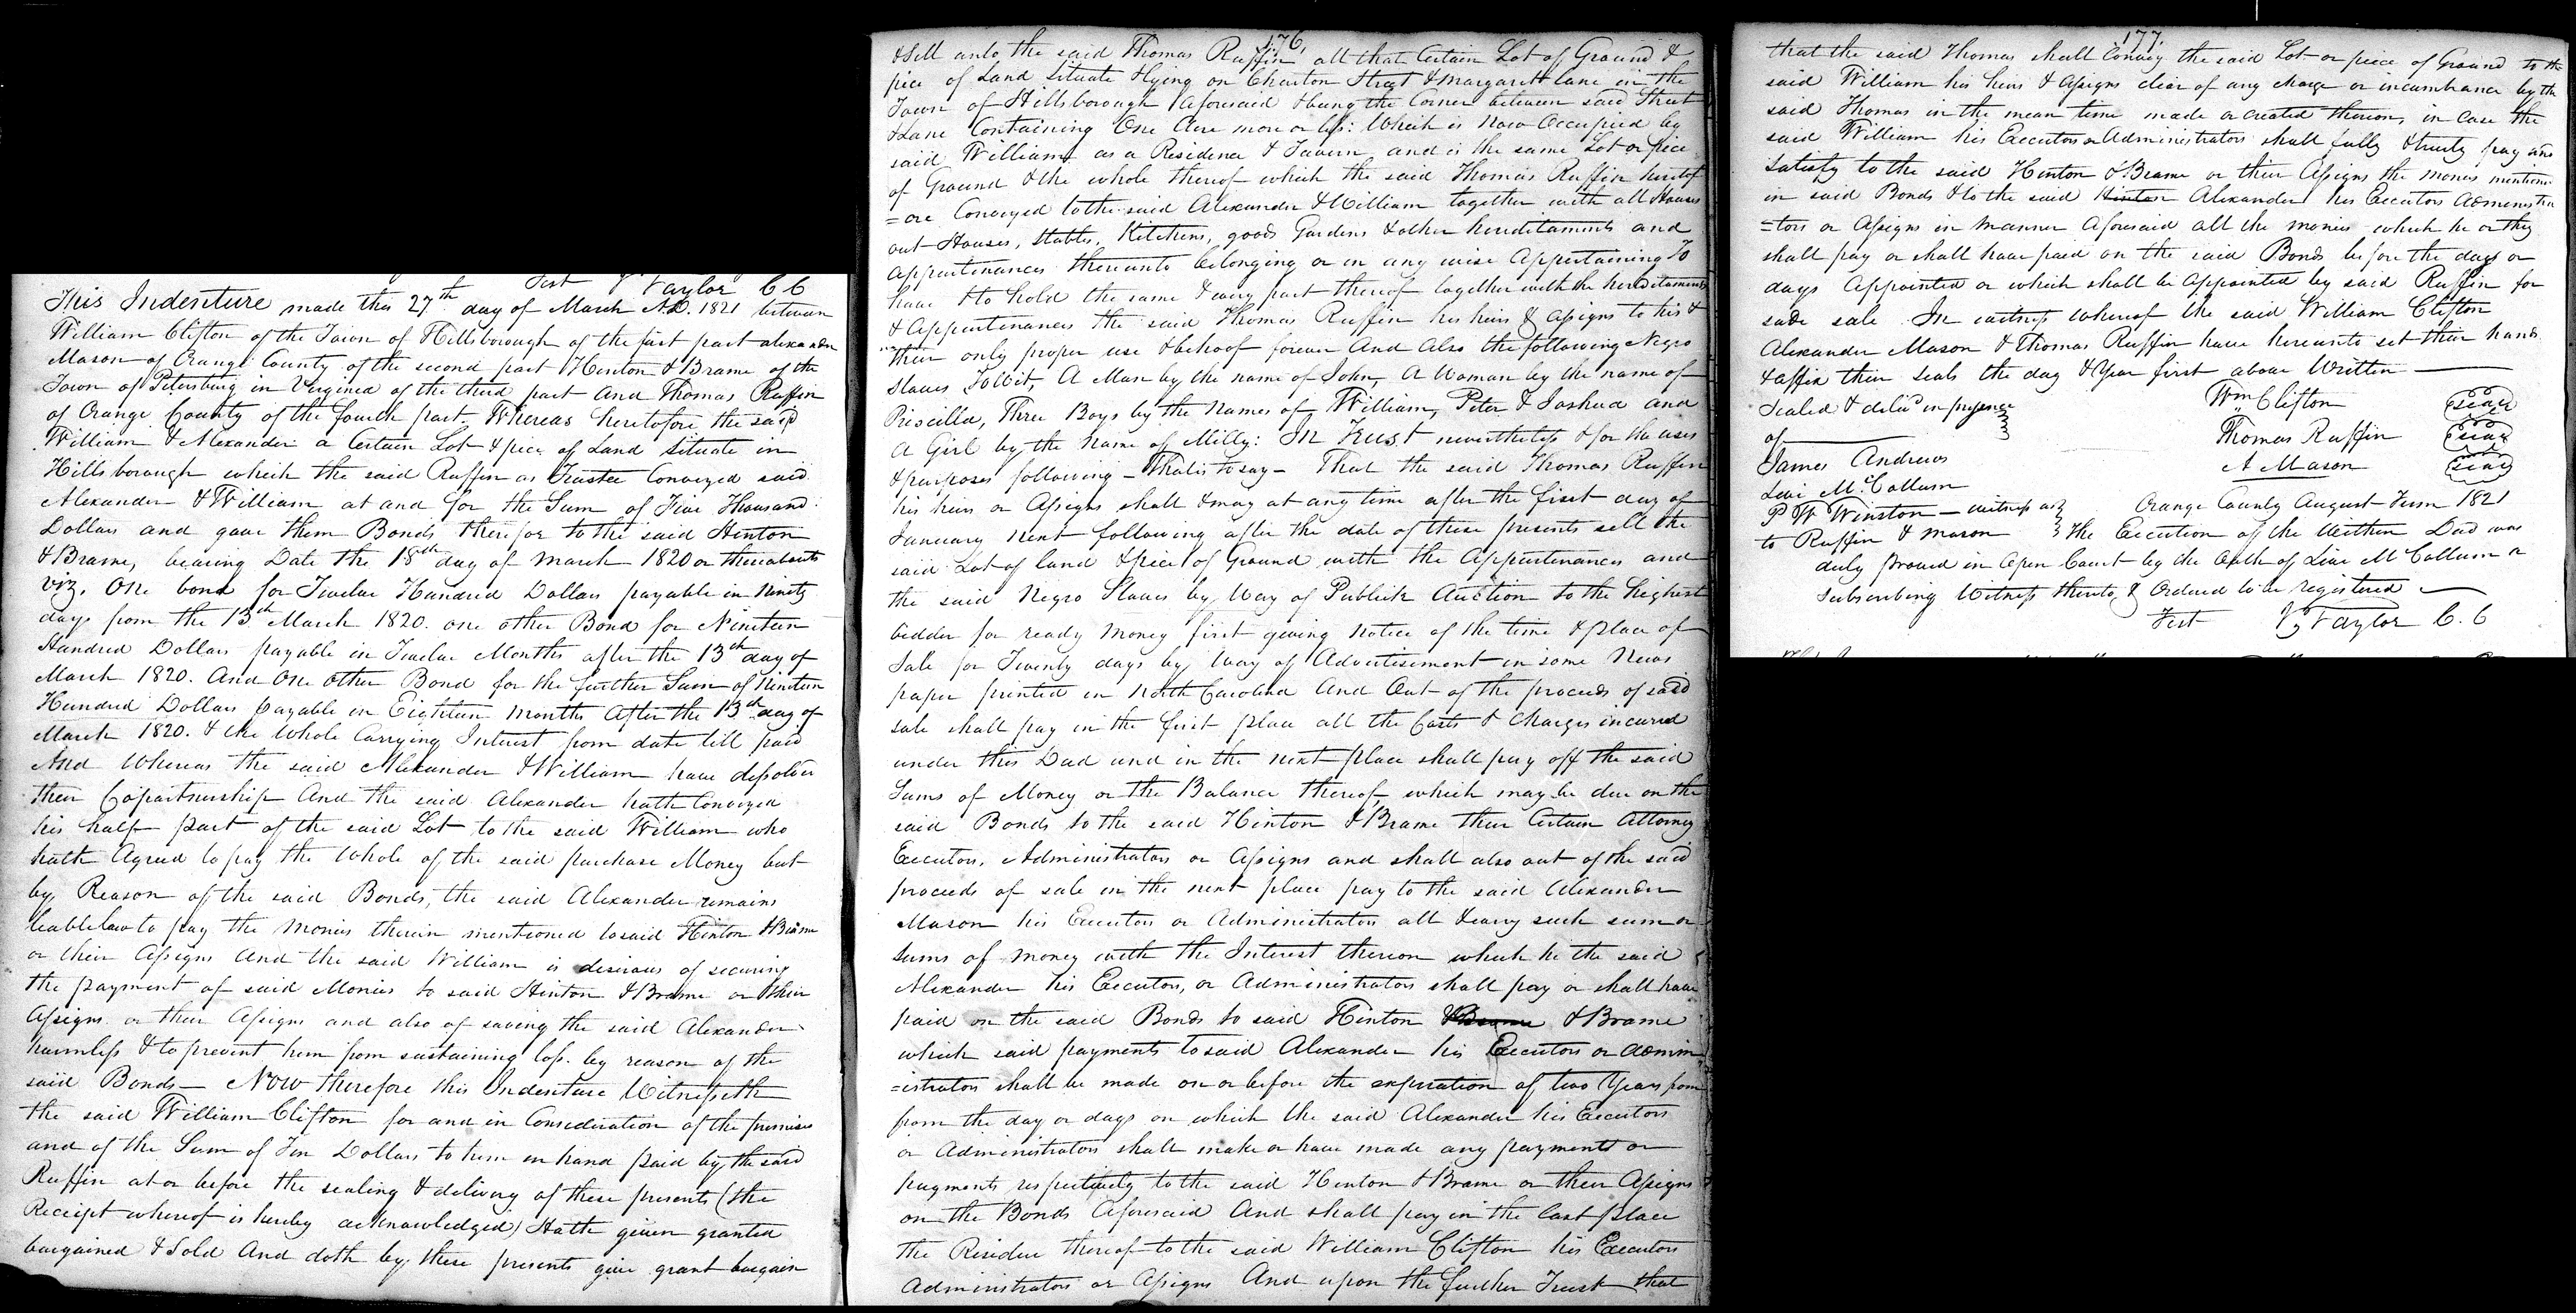 Test J Taylor CC
This Indenture made this 27th day of March A.D. 1821 between
William Clifton of the Town of Hillsborough of the first part alexander
Mason of Orange County of the second part Hinton & Brame of the
Town of Petersburg in Virginia of the third part And Thomas Ruffin
of Orange County of the fourth part. Whereas heretofore the said
William & Alexander a Certain Lot & piece of Land Situate in
Hillsborough which the said Ruffin as Trustee Conveyed said
Alexander & William at and for the Sum of Five Thousand
Dollars and gave them Bonds therefor to the said Hinton
& Brame, bearing Date the 18th day of March 1820 or thereabouts
Viz. One bond for Twelve Hundred Dollars payable in Ninety
days from the 13th March 1820. one other Bond for Nineteen
Hundred Dollars payable in Twelve Months after the 13th day of
March 1820. And One other Bond for the further Sum of Nineteen
Hundred Dollars payable in Eighteen Months After the 13th day of
March 1820. & the Whole Carrying Interest from date till paid
And Whereas the said Alexander & William have dissolved
their Copartnership And the said Alexander hath Conveyed
his half part of the said Lot to the said William who
hath Agreed to pay the Whole of the said purchase Money but
by Reason of the said Bonds, the said Alexander remains
to pay the Monies therein mentioned to said Hinton & Brame
or their Assigns And the said William is desirous of securing
the payment of said Monies to said Hinton & Brame or their
Assigns or their Assigns and also of saving the said Alexander
harmless & to prevent him from sustaining loss by reason of the
said Bonds — Now therefore this Indenture Witnesseth
the said William Clifton for and in Consideration of the premises
and of the Sum of Ten Dollars to him in hand paid by the said
Ruffin at or before the sealing & delivery of these presents (the
Receipt whereof is hereby acknowledged) Hath given granted
bargained & Sold And doth by these presents give grant bargain
176,
& Sell unto the said Thomas Ruffin all that Certain Lot of Ground &
piece of Land Situate & lying on Churton Street & Margarett lane in the
Town of Hillsborough Aforesaid & being the Corner between said Street
& Lane Containing One Acre more or less: Which is Now Occupied by
said William as a Residence & Tavern and is the same Lot or piece
of Ground & the whole thereof which the said Thomas Ruffin heretof
=ore Conveyed to the said Alexander & William together with all Houses
out Houses, Stables, Kitchens, goods Gardens & other hereditaments and
appurtenances thereunto belonging or in any wise Appertaining To
have & to hold the same & every part thereof together with the hereditaments
& Appurtenances the said Thomas Ruffin his heirs & assigns to his &
their only proper use & behoof forever And Also the following Negro
Slaves ToWit, A Man by the name of John, A Woman by the name of
Priscilla, Three Boys by the Names of William, Peter & Joshua and
A Girl by the Name of Milly: In Trust nevertheless & for the uses
& purposes following — That is to say — That the said Thomas Ruffin
his heirs or Assigns shall & may at any time after the first day of
January next following after the date of these presents sell the
said Lot of land & piece of Ground with the Appurtenances and
the said Negro Slaves by Way of Publick Auction to the highest
bidder for ready Money first giving Notice of the time & place of
Sale for Twenty days by Way of Advertisement in some News
paper printed in North Carolina And Out of the proceeds of said
sale shall pay in the first place all the Costs & Charges incured
under this Deed and in the next place shall pay off the said
Sums of Money or the Balance thereof which may be due on the
said Bonds to the said Hinton & Brame their Certain Attorney
Executors, Administrators or Assigns and shall also out of the said
proceeds of sale in the next place pay to the said Alexander
Mason his Executors or Administrators all & every such sum or
Sums of money with the Interest thereon which he the said
Alexander his Executors, or Administrators shall pay or shall have
paid on the said Bonds to said Hinton & Brame & Brame
which said payments to said Alexander his Executors or Admin
=istrators shall be made on or before the expiration of two Years from
from the day or days on which the said Alexander his Executors
or Administrators shall make or have made any payments or
payments respectively to the said Hinton & Brame or their Assigns
on the Bonds Aforesaid And shall pay in the last place
the Residue thereof to the said William Clifton his Executors
Administrators or Assigns And upon the further Trust that
177.
that the said Thomas shall Convey the said Lot or piece of Ground to the
said William his heirs & Assigns clear of any charge or incumbrance by the
said Thomas in the mean time made or created thereon, in case the
said William his Executors or Administrators shall fully & truely pay and
satisfy to the said Hinton & Brame or their Assigns the monies mentioned
in said Bonds & to the said Hinton Alexander his Executors Administra
=tors or Assigns in manner Aforesaid all the monies which he or they
shall pay or shall have paid on the said Bonds before the days or
days Appointed or which shall be Appointed by said Ruffin for
sade sale. In witness whereof the said William Clifton
Alexander Mason & Thomas Ruffin have hereunto set their hands
& affix their Seals the day & Year first above Written
Sealed & delivd in presence
of
Wm Clifton seal
Thomas Ruffin seal
A Mason seal
James Andrews
Levi McCollum
P W Winston — witness as
to Ruffin & Mason
Orange County August Term 1821
The Execution of the Written Deed was
duly proved in Open Court by the Oath of Levi McCollum a
Subscribing Witness thereto, & Ordered to be registered
Test J Taylor C. C